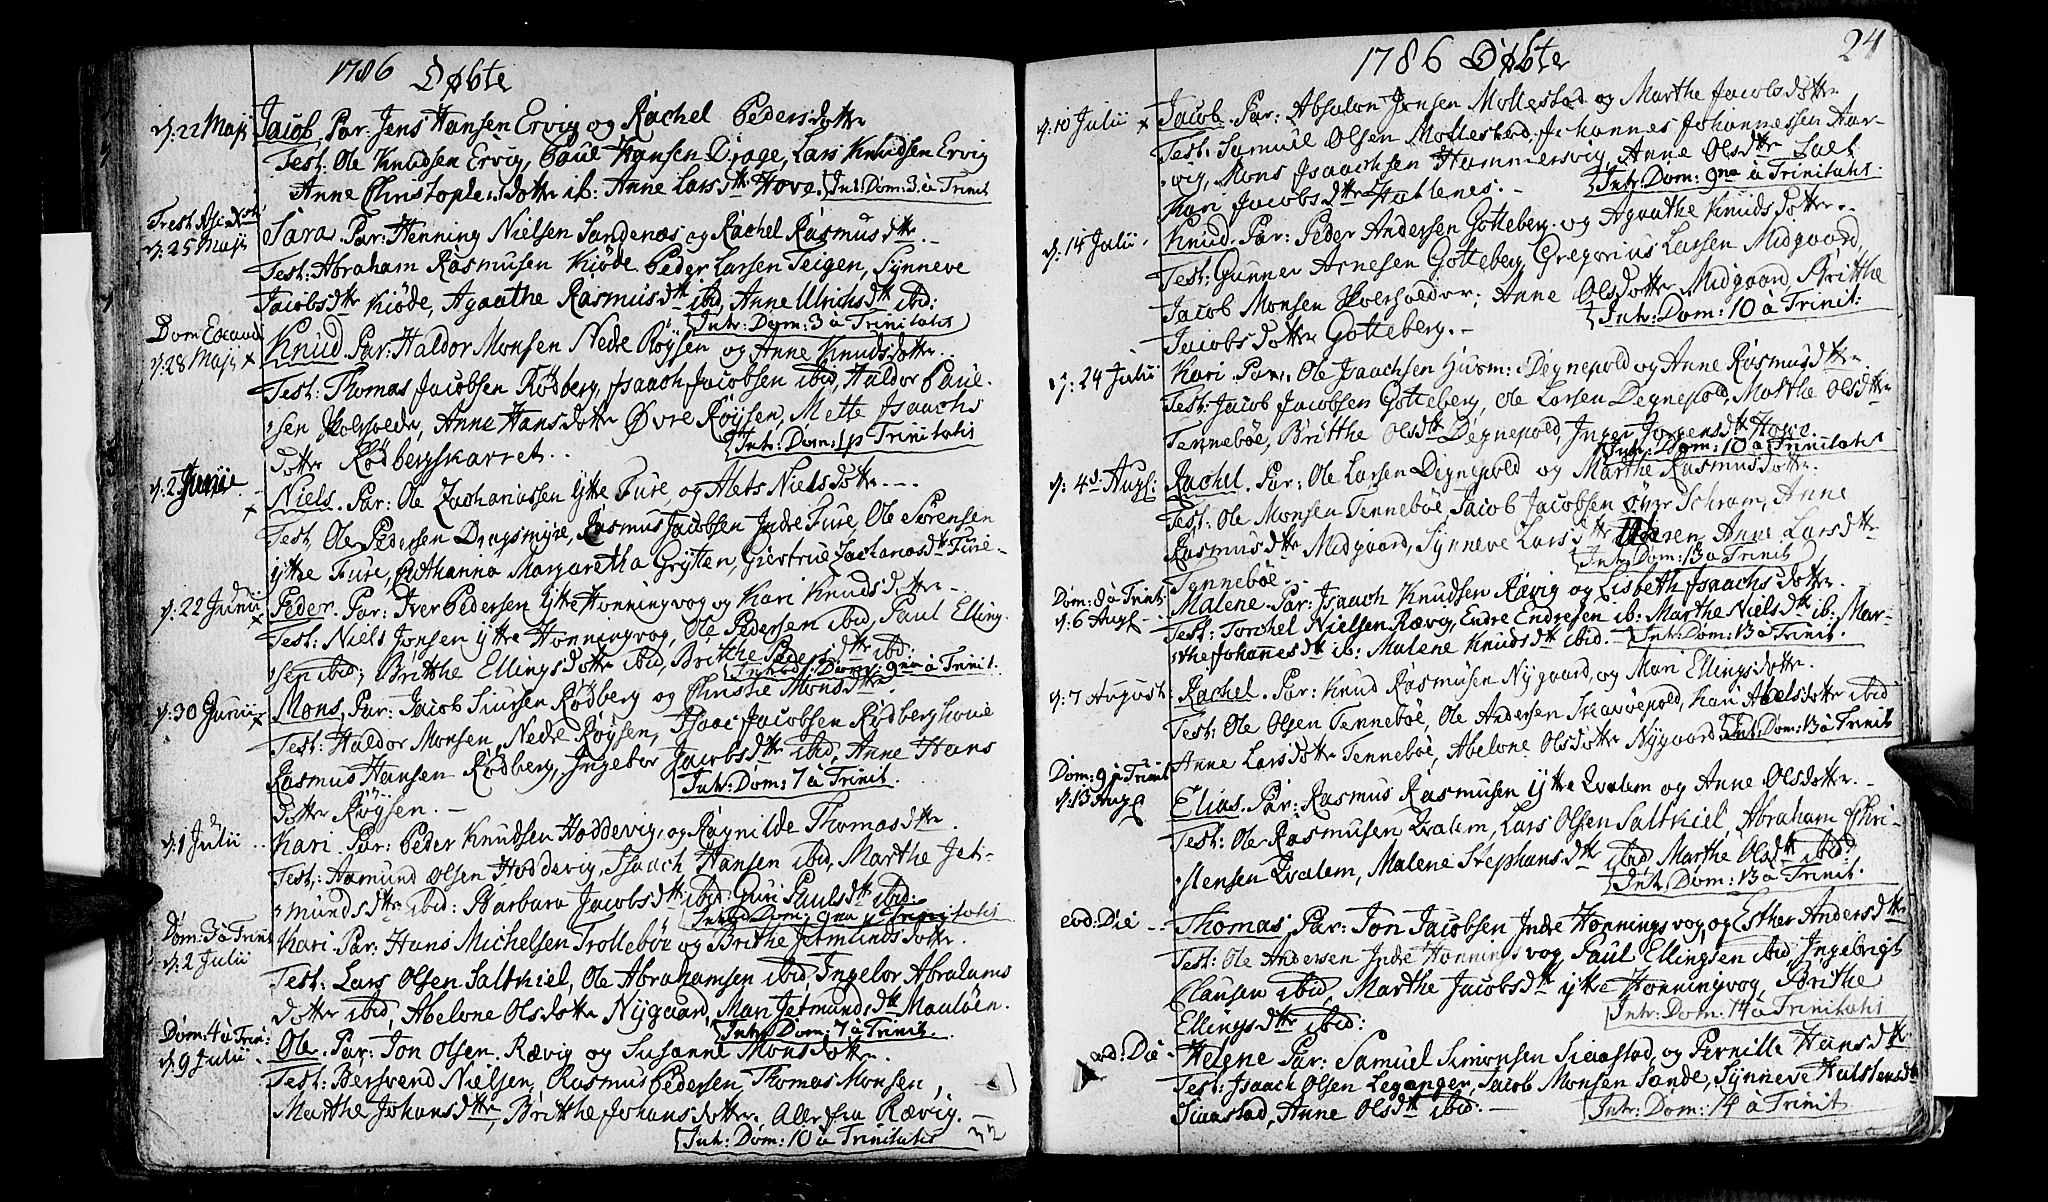 1786 Døbte
d: 22 Maji Jacob. Par: Jens Hansen Ervig og Rachel Pedersdotter
Test: Ole Knudsen Ervig, Paul Hansen Drage, Lars Knudsen Ervig
Anne Christophersdotter ib: Anne Larsdtr Hove. Intr: Dom: 3 à Trinit
Fest: Asc: Xsti
d: 25 Maji Sara. Par: Henning Nielsen Sandenæs og Rachel Rasmusdtr.
Test: Abraham Rasmusen Kiøde. Peder Larsen Teigen, Synneve
Jacobsdtr Kiøde, Agaathe Rasmusdtr ibid, Anne Ulrichsdtr ibid:
Intr: Dom: 3 à Trinitatis
Dom Exaudi
d: 28 Maji x Knud. Par: Haldor Monsen Nedre Røysen og Anne Knudsdotter.
Test: Thomas Jacobsen Rødberg, Isaach Jacobsen ibid, Haldor Paul-
sen Skolsvede, Anne Hansdotter Øvre Røysen, Mette Isaachs
dotter Rødbergskarret. Intr: Dom: 1 p Trinitatis
d: 2 Junii x Niels. Par: Ole Zachariassen Ytre Fure, og Alets Nielsdotter.
Test, Ole Pedersen Dragsmyre, Rasmus Jacobsen Indre Fure, Ole Sørensen
ytre Fure, Cathanna Margaretha Grytten, Giertrue Zachariasdtr Fure.
d: 22 Junii x Peder. Par: Iver Pedersen Ytre Honningvog og Kari Knudsdotter.
Test: Niels Jonsen ytre Honningvog, Ole Pedersen ibid, Paul Elling-
sen ibid; Brithe Ellingsdotter ibid, Brithe Pedersdtr ibid:
Introd: Dom: 9na à Trinit.
d: 30 Junii x Mons, Par: Jacob Siursen Rødberg og Christie Monsdtr.
Test: Haldor Monsen, Nedre Røysen, Isaac Jacobsen Rødberghoue
Rasmus Hansen Rødberg, Ingebor Jacobsdtr ibid, Anne Hans
dotter Røysen. Intr: Dom: 7 à Trinit.
d: 1 Julii Kari. Par: Peder Knudsen Hoddevig, og Ragnilde Thomasdtr.
Test: Aamund Olsen Hoddevig, Isaach Hansen ibid, Marthe Jet-
mundsdtr ibid: Barbara Jacobsdtr ibid Guri Paulsdtr ibid:
Introd Dom: 9na p Trinitatis
Dom: 3 à Trinit
d: 2 Julii Kari. Par: Hans Michelsen Trollebøe og Brithe Jetmundsdotter.
Test: Lars Olsen Saltkiel, Ole Abrahamsen ibid, Ingebor Abrahams
dotter ibid, Abelone Olsdotter Nygaard, Mari Jetmundsdtr Mauløen.
Intr: Dom: 7 à Trinit.
Dom: 4 à Trin:
d: 9 Julii Ole. Par: Jon Olsen. Rævig og Susanne Monsdotter.
Test: Bersvend Nielsen, Rasmus Pedersen, Thomas Monsen,
Marthe Johansdtr, Brithe Johansdotter. Alle fra Rævig.
Intr: Dom: 10 à Trinitatis
1786 Døbte
24
d: 10 Julii x Jacob. Par: Absalon Jonsen Mollestad og Marthe Jacobsdotter
Test: Samuel Olsen Mollestad, Johannes Johannessen Aar-
vig, Mons Isaachsen Hammersvig, Anne Olsdtr Salt
Kari Jacobsdtr Haltenes. Intr: Dom: 9na à Trinitatis.
d: 14 Julii. Knud. Par: Peder Andersen Gotteberg. og Agaathe Knudsdotter.
Test: Gunner Arnesen Gotteberg, Gregorius Larsen Midgaard,
Jacob Monsen Skolsvedor; Anne Olsdotter Midgaard, Brithe
Jacobsdotter Gotteberg. Intr: Dom: 10 à Trinit:
d: 24 Julii Kari. Par: Ole Isaachsen Husm: Degnepold og Anne Rasmusdtr
Test: Jacob Jacobsen Gotteberg, Ole Larsen Degnepold, Marthe Olsdtr
Tennebøe, Brithe Olsdtr Degnepold, Inger Jorgensdtr Hove
Intr: Dom: 10 à Trinitatis
d: 4de Aug: Rachel. Par: Ole Larsen Degnepold og Marthe Rasmusdotter.
Test: Ole Monsen Tennebøe, Jacob Jacobsen øvre Schram, Anne
Rasmusdtr Midgaard, Synneve Larsdtr Ideren, Anne Larsdtr
Tennebøe. Intr: Dom: 13 à Trinit
Dom: 8 à Trinit:
d: 6 Aug Malene. Par: Isaach Knudsen Rævig og Lisbeth Isaachsdotter.
Test: Torchel Nielsen Rævig, Endre Endresen ib: Marthe Nielsdtr ib: Mar-
the Johanesdtr ib: Malene Knudsdtr ibid. Intr: Dom: 13 à Trinit.
d: 7 August Rachel. Par: Knud Rasmusen Nygaard, og Mari Ellingsdotter.
Test: Ole Olsen Tennebøe, Ole Andersen Skarøepold, Kari Abelsdotter ibid
Anne Larsdotter Tennebøe, Abelone Olsdotter Nygaard. Int: Dom: 13 à Trinit
Dom: 9 à Trinit
d: 13 Aug Elias. Par: Rasmus Rasmusen ytre Qvalem og Anne Olsdotter.
Test: Ole Rasmusen Qvalem, Lars Olsen Saltkiel, Abraham Chri-
stensen Qvalem, Malene Stephansdtr ibid Marthe Olsdtr ibid:
Intr Dom: 13 à Trinit.
eod: Die Thomas, Par: Jon Jacobsen Indre Honningsvog, og Esther Andersdtr
Test: Ole Andersen Indre Honningsvog, Paul Ellingsen ibid, Ingebrigt
Clausen ibid, Marthe Jacobsdtr ytre Honningvog, Brithe
Ellingsdtr ibid: Intr: Dom: 14 à Trinitatis
eod: Die Helene Par: Samuel Simonsen Siaastad, og Pernille Hansdtr
Test: Isaach Olsen Leganger, Jacob Monsen Sande, Synneve Halstensdtr
Siaastad, Anne Olsdtr ibid: Intr: Dom: 14 à Trinit